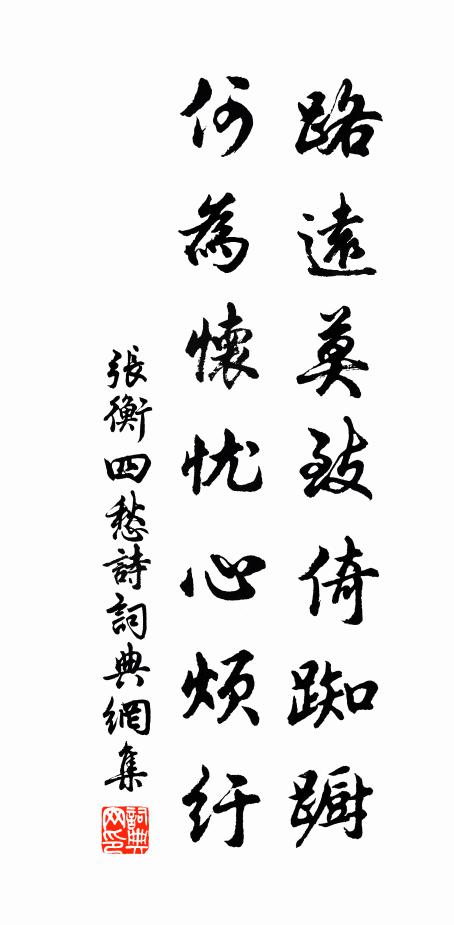 路遠莫致倚踟躕
何為懷忧心煩紆
張衡四愁詩詞典網集
詞典网印